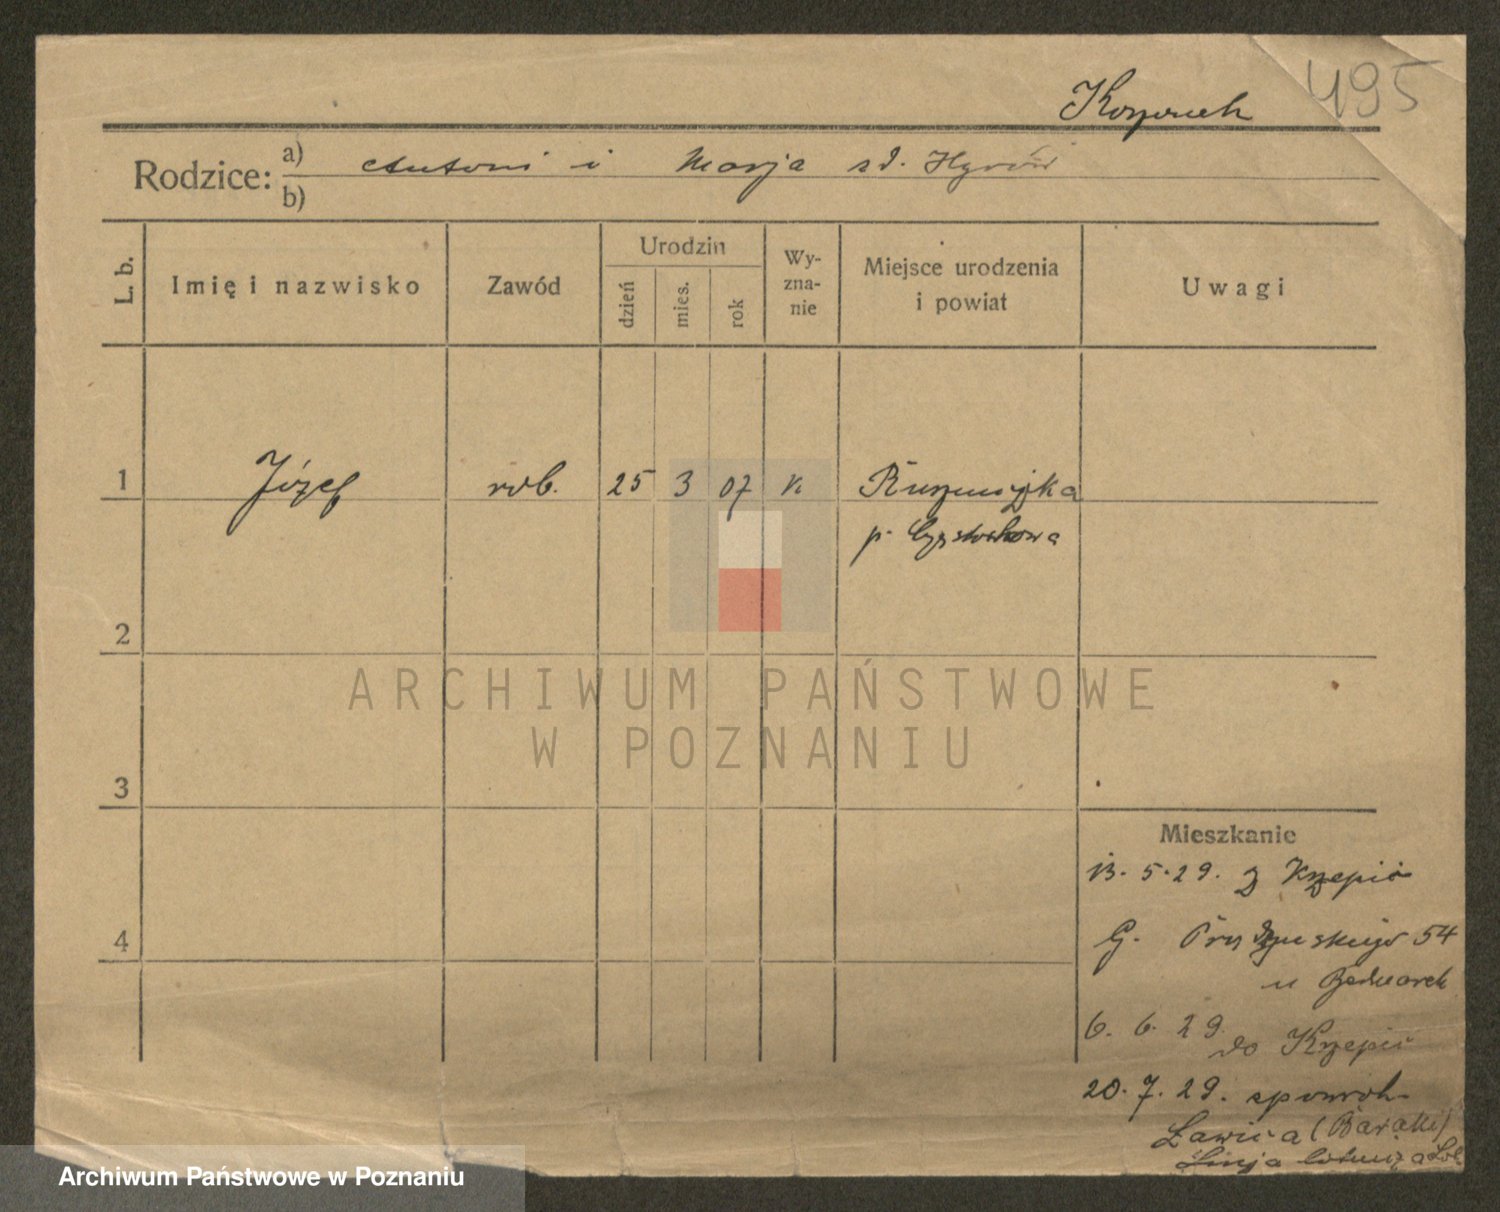 495
Rodzice: a) Antoni i Marja zd.
b)
L. b.
Imię i nazwisko
Zawód
Urodzin
dzień
mies.
rok
Wy-
zna-
nie
Miejsce urodzenia
i powiat
Uwagi
1 Józef rob. 25 3 07 k
p. Częstochowa
2
ARCHIWUM PAŃSTWOWE
W POZNANIU
3
Mieszkanie
13. 5. 29. z Krzepic
4
G. 54
u Bednarek
6. 6. 29.
do Krzepic
20. 7. 29.
Ławica (Baraki)
Linja
Archiwum Państwowe w Poznaniu